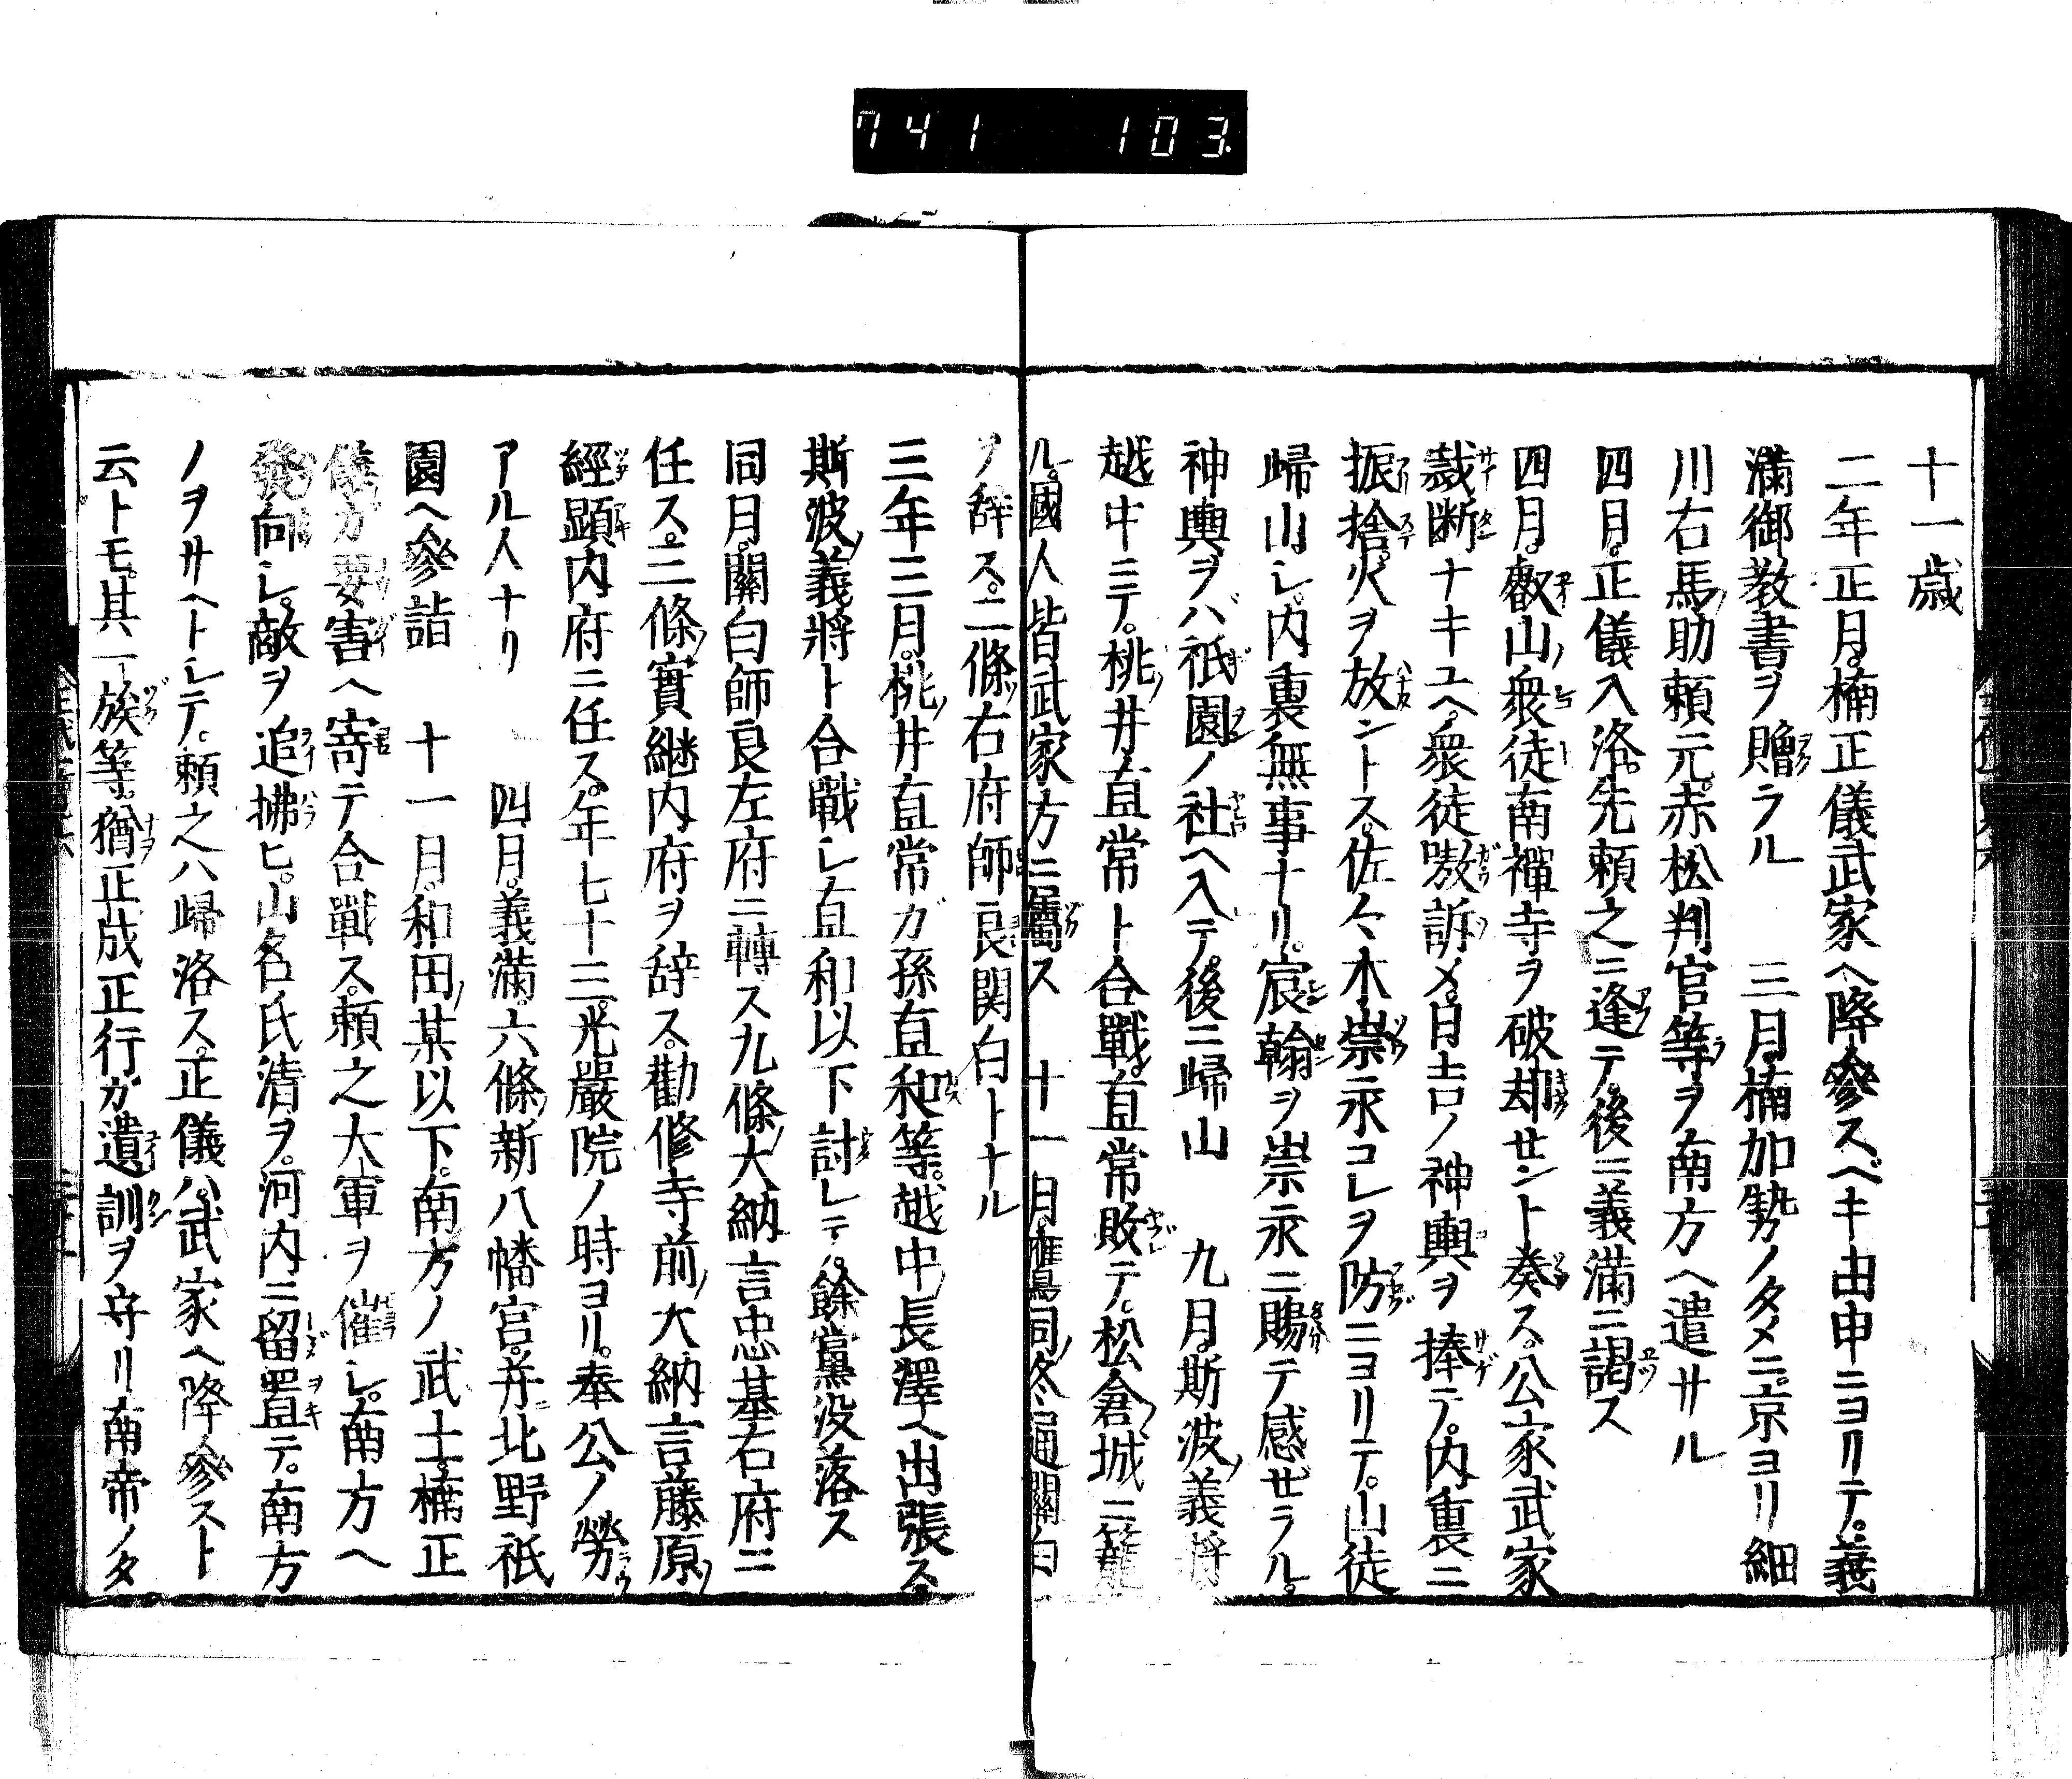 741 103
十一歳
二年正月。楠正儀武家ヘ降參スベキ由申ニヨリテ。義
滿御教書ヲ贈ラル 三月。楠加勢ノタメニ。京ヨリ細
川右馬助頼元。赤松判官等ヲ南方ヘ遣サル
四月。正儀入洛。先頼之ニ逢テ。後ニ義滿ニ謁ス
四月。叡山衆徒南禪寺ヲ破却セント奏ス。公家武家
裁斷ナキユヘ。衆徒嗷訴メ。日吉ノ神輿ヲ捧テ。内裏ニ
振捨。火ヲ放ントス。佐々木崇永コレヲ防ニヨリテ。山徒
歸山シ。内裏無事ナリ。宸翰ヲ崇永ニ賜テ感ゼラル。
神輿ヲバ祇園ノ社ヘ入テ。後ニ歸山 九月。斯波義將
越中ニテ。桃井直常ト合戰。直常敗テ。松倉城ニ籠
ル。國人皆武家方ニ屬ス 十一月。鷹司冬通關白
ヲ辞ス。二條右府師良関白トナル
三年三月。桃井直常ガ孫直和等。越中長澤ヘ出張ス。
斯波義將ト合戰シ直和以下討レテ。餘黨没落ス
同月。關白師良左府ニ轉ス九條大納言忠基右府ニ
任ス。三條實継内府ヲ辞ス。勸修寺前大納言藤原
經顕内府ニ任ス。年七十三。光嚴院ノ時ヨリ。奉公ノ勞
アル人ナリ 四月。義滿。六條新八幡宮。并北野祇
園ヘ參詣 十一月。和田某以下。南方ノ武士。楠正
儀ガ要害ヘ寄テ合戰ス。頼之大軍ヲ催シ。南方ヘ
發向シ。敵ヲ追拂ヒ。山名氏清ヲ。河内ニ留置テ。南方
ノヲサヘトレテ。頼之ハ歸洛ス。正儀ハ。武家ヘ降參スト
云トモ。其一族等。猶正成正行ガ遺訓ヲ守リ南帝ノタ